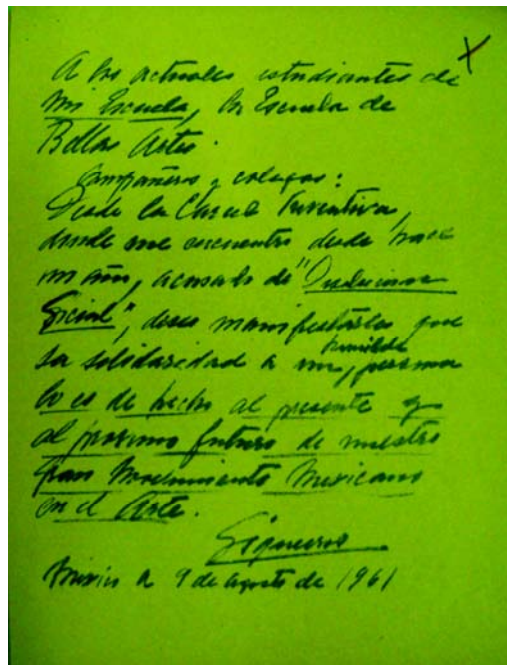 X
A los actuales estudiantes de
mi Escuela, la Escuela de
Bellas Artes.
Compañeros y colegas:
Desde la Carcel Preventiva,
donde me encuentro desde hace
un año, acusado de "Disolucion
Social", deseo manifestarles que
su solidaridad a mi, humilde persona
lo es de hecho al presente y
al proximo futuro de nuestro
gran Movimiento Mexicano
en el Arte.
Siqueiros
Mexico a 9 de agosto de 1961